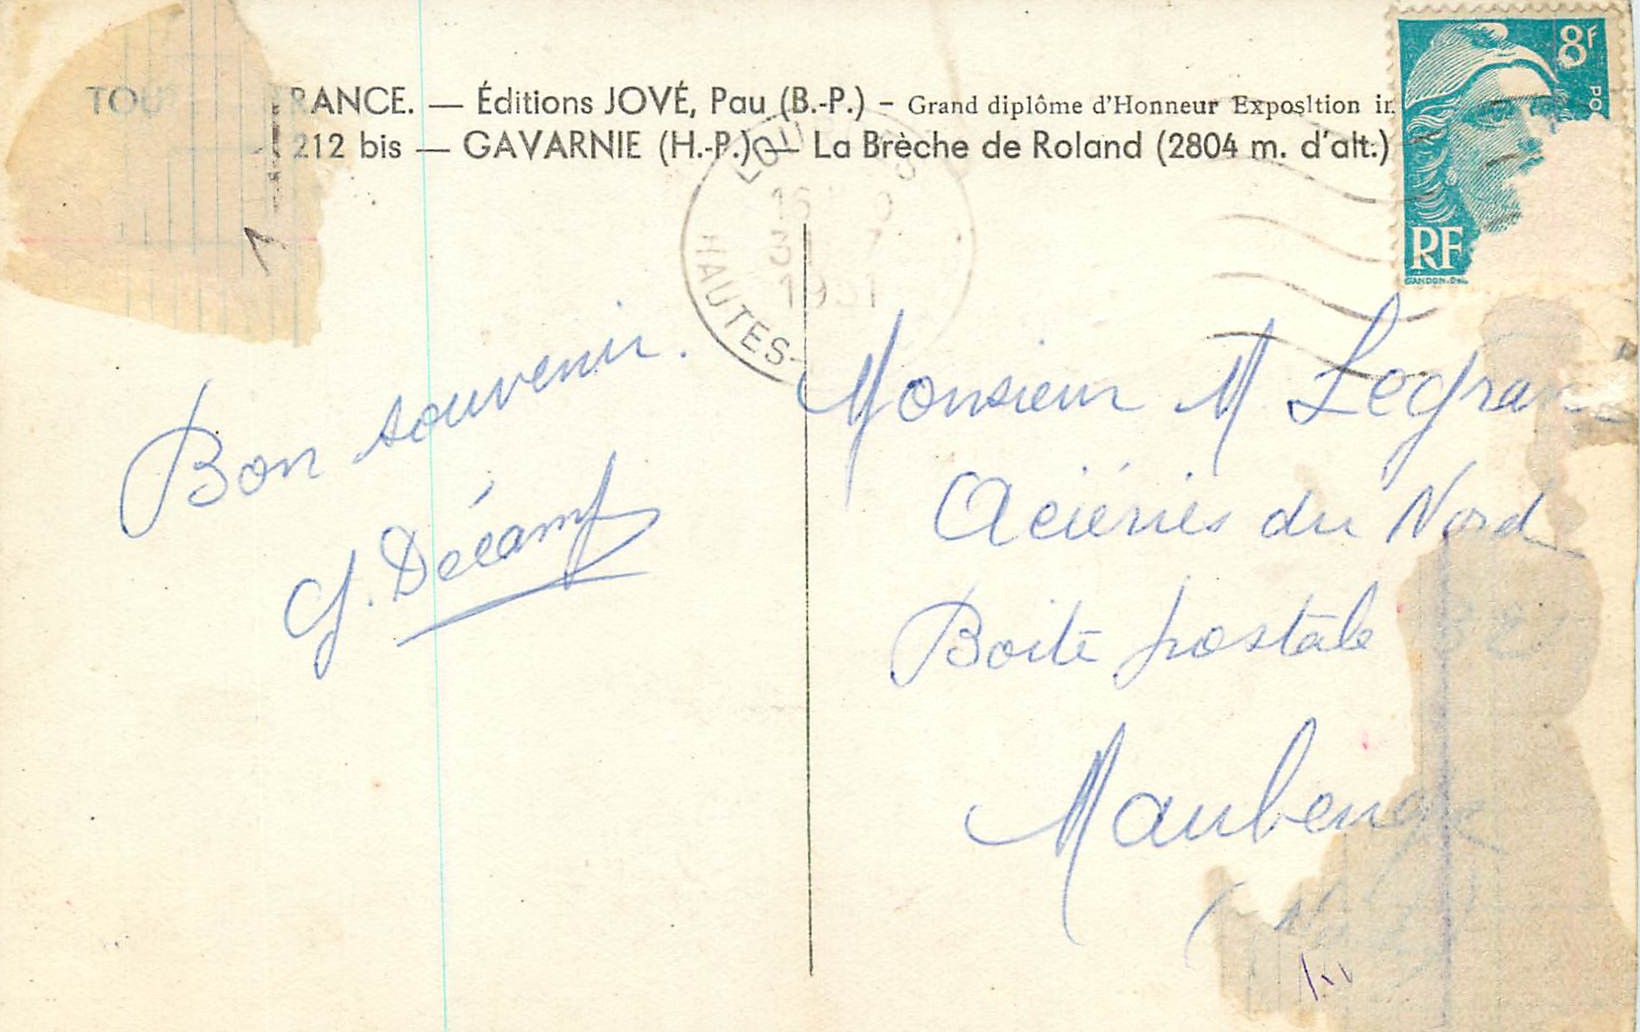 FRANCE. — Éditions JOVÉ, Pau (B.-P.) – Grand diplôme d'Honneur Exposition in
212 bis — GAVARNIE (H.-P.) — La Brèche de Roland (2804 m. d'alt.)
8F
RF
GANDON
HAUTES-
1951
Bon souvenir.
G. Décamp
Monsieur M. Legrand
Aciéries du Nord
Boite postale
Maubeuge
(Nord)